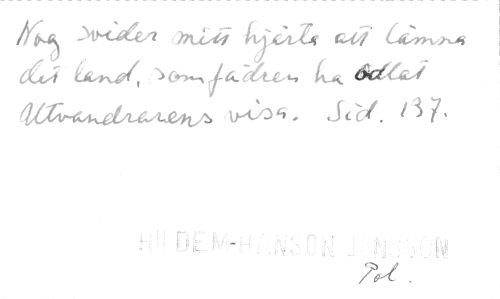 Nog svider mitt hjärta att lämna
det land, som fädren ha odlat
Utvandrarens visa. Sid. 137.
M-HANSON
Pol.